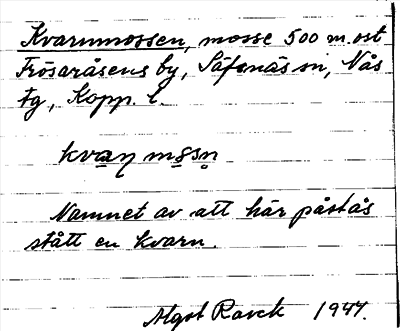 Kvarnmossen, mosse 500 m. ost
Frösaråsens by, Säfsnäs sn, Nås
tg, Kopp. l.
kvaṇ mosn̥
Namnet av att här påstås
stått en kvarn.
Algot Ravck 1947.